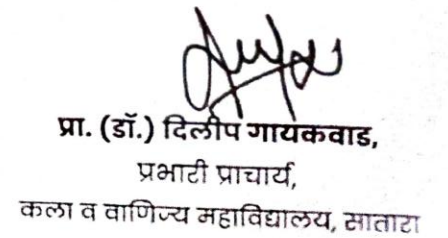 प्रा. (डॉ.) दिलीप गायकवाड,
प्रभारी प्राचार्य,
कला व वाणिज्य महाविद्यालय, सातारा